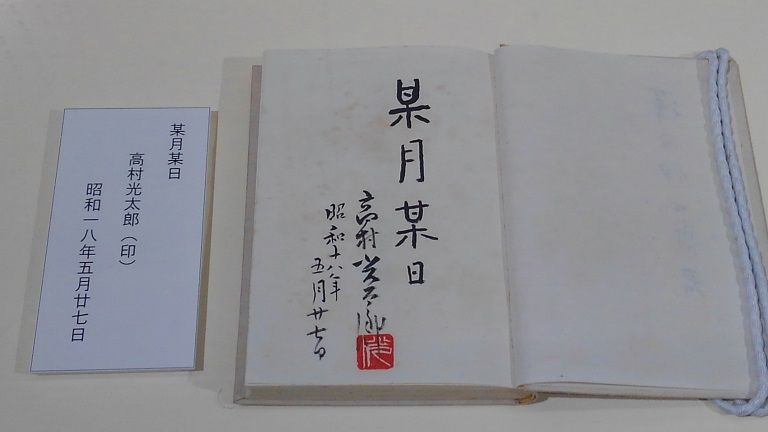 某月某日
高村光太郎
昭和十八年
五月廿七日
某月某日
高村光太郎（印）
昭和一八年五月廿七日